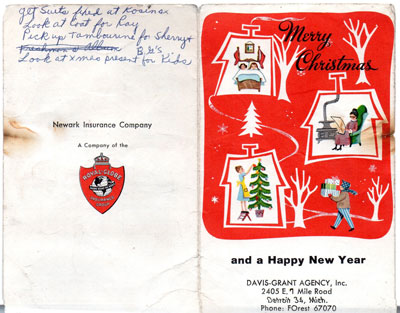 get Suits fixed at Rosinas
Look at Coat for Ray
Pick up Tambourine for Sherry +
Freshman's Album B.G's
Look at Xmas present for Kids
Newark Insurance Company
A Company of the
ROYAL-GLOBE
INSURANCE GROUP
Merry
Christmas
and a Happy New Year
DAVIS-GRANT AGENCY, Inc.
2405 E. 9 Mile Road
Detroit 34, Mich.
Phone: FOrest 67070